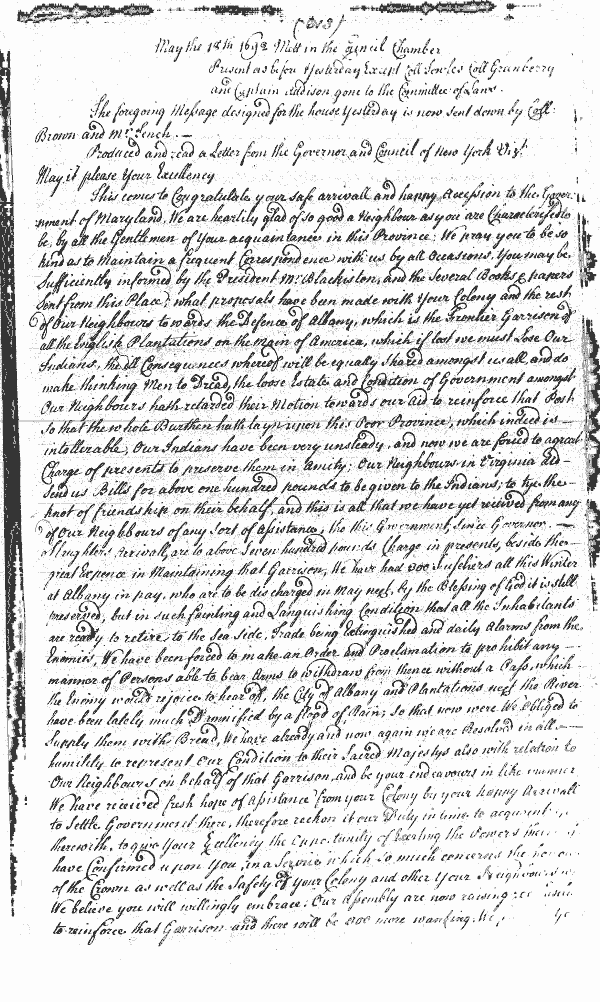 (313)
May the 18th 1692 Mett in the Council Chamber
Present as before Yesterday Except Coll Jowles Coll Granberry
and Captain Addison gone to the Committee of Laws.
The foregoing Message designed for the house Yesterday is now sent down by Coll:
Brown and Mr. Tench. —
Produced and read a Letter from the Governor and Council of New York Vizt.
May it please Your Excellency
This comes to Congratulate your safe arrivall and happy Accession to the Gover-
nment of Maryland, We are heartily glad of so good a Neighbour as you are Characterised to
be, by all the Gentlemen of Your acquaintance in this Province: We pray you to be so
kind as to Maintain a frequent Correspondence with us by all Occasions. You may be
Sufficiently informed by the President Mr. Blackiston, and the Several Books & papers
Sent from this Place, what proposals have been made with Your Colony and the rest,
of Our Neighbours towards the Defence of Albany, which is the Frontier Garrison of
all the English Plantations on the main of America, which if lost we must Lose Our
Indians, the ill Consequences whereof will be equally Shared amongst us all, and do
make thinking Men to Dread, the loose Estate and Condition of Government amongst
Our Neighbours hath retarded their Motion towards our Aid to reinforce that Post
So that the whole Burthen hath layn upon this Poor Province, which indeed is —
intollerable, Our Indians have been very unsteady, and now we are forced to a great
Charge of presents to preserve them in Amity; Our Neighbours in Virginia did
Send us Bills for above one hundred pounds to be given to the Indians; to tye the
knot of friendship on their behalf, and this is all that we have yet received from any
of Our Neighbours of any Sort of Assistance, tho this Government, Since Governor. —
Slaughters Arrivall, are to above Seven hundred pounds Charge in presents, beside the
great Expence in Maintaining that Garrison, We have had 200 fusileers all this Winter
at Albany in pay, who are to be discharged in May next, by the Blessing of God it is still
preserved, but in such fainting and Languishing Condition that all the Inhabitants
are ready to retire, to the Sea Side, Trade being Extinguished and daily Alarms from the
Enemies, We have been forced to make an Order and Proclamation to prohibit any —
mannor of Persons able to bear Arms to withdraw from thence without a Pass, which
the Enemy would rejoice to hear of, the City of Albany and Plantations next the River
have been lately much Damnified by a flood of Rain; So that now were We Obliged to
Supply them with Bread, We have already and now again we are Resolved in all —
humility to represent Our Condition to their Sacred Majestys also with relation to
Our Neighbours on behalf of that Garrison, and be your endeavours in like manner
We have received fresh hope of Assistance from your Colony by your happy Arrivall
to Settle Government there, therefore reckon it our Duty in time to acquaint
therewith, to give Your Excellency the Oppertunity of Exerting the Powers
have Confirmed upon You, in a Service which So much concerns the
of the Crown as well as the Safety of your Colony and other Your Neighbours
We believe you will willingly embrace: Our Assembly are now raising
to reinforce that Garrison and there will be 200 more wanting. We